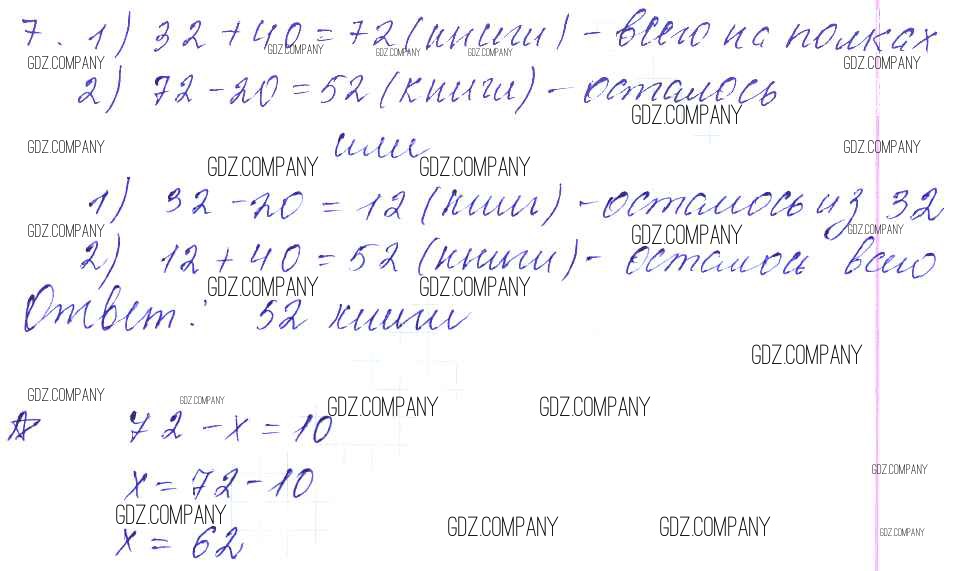 7. 1) 32 + 40 = 72 (книги) - всего на полках
GDZ.COMPANY GDZ.COMPANY GDZ.COMPANY GDZ.COMPANY GDZ.COMPANY
2) 72 - 20 = 52 (книги) - осталось
GDZ.COMPANY
или
GDZ.COMPANY GDZ.COMPANY GDZ.COMPANY GDZ.COMPANY
1) 32 - 20 = 12 (книг) - осталось из 32
GDZ.COMPANY GDZ.COMPANY GDZ.COMPANY
2) 12 + 40 = 52 (книги) - осталось всего
GDZ.COMPANY GDZ.COMPANY
Ответ: 52 книги
GDZ.COMPANY
GDZ.COMPANY GDZ.COMPANY GDZ.COMPANY GDZ.COMPANY
72 - х = 10
GDZ.COMPANY
х = 72 - 10
GDZ.COMPANY GDZ.COMPANY GDZ.COMPANY GDZ.COMPANY
х = 62